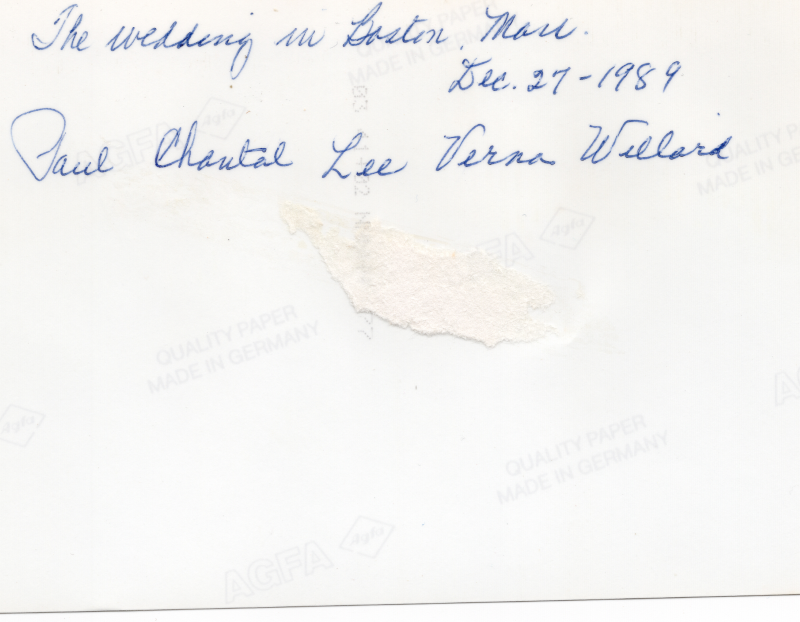 The wedding in Boston, Mass.
Dec. 27-1989
Paul Chantal Lee Verna Willard
AGFA agfa
QUALITY PAPER
MADE IN GERMANY
AGFA agfa
QUALITY PAPER
MADE IN GERMANY
QUALITY PAPER
MADE IN GERMANY
agfa
QUALITY PAPER
MADE IN GERMANY
AGFA agfa